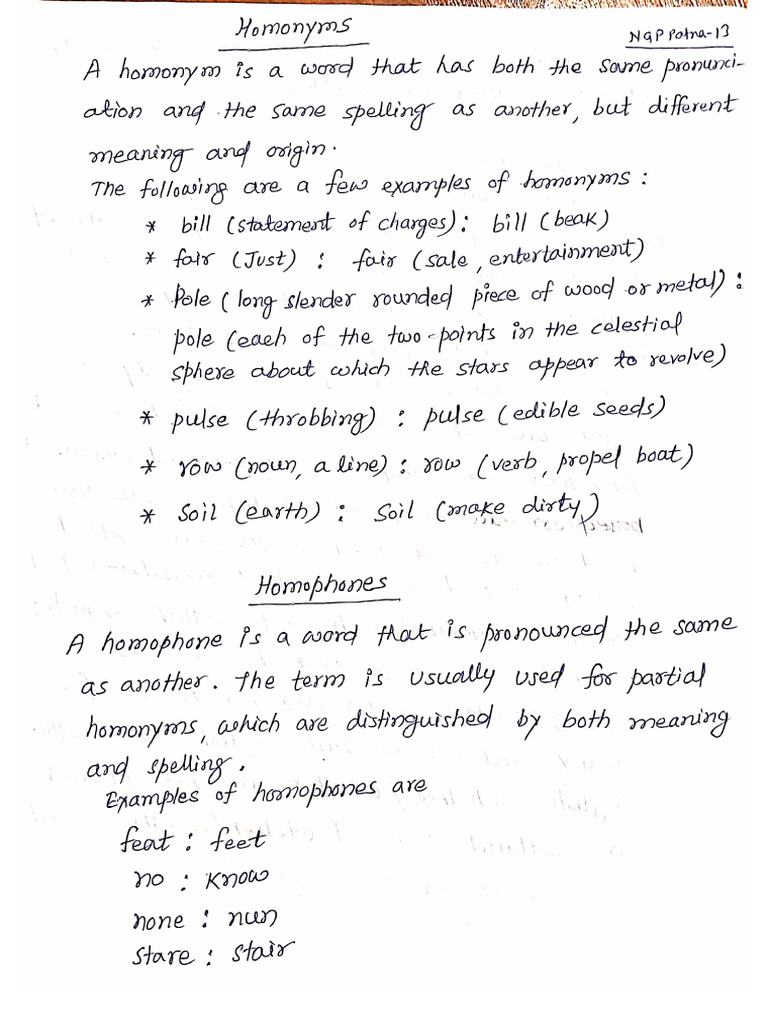 Homonyms
NGP Patna-13
A homonym is a word that has both the same pronunci-
ation and the same spelling as another, but different
meaning and origin.
The following are a few examples of homonyms :
* bill (statement of charges) : bill (beak)
* fair (Just) : fair (sale, entertainment)
* Pole (long slender rounded piece of wood or metal) :
pole (each of the two-points in the celestial
sphere about which the stars appear to revolve)
* pulse (throbbing) : pulse (edible seeds)
* row (noun, a line) : row (verb, propel boat)
* Soil (earth) : Soil (make dirty)
Homophones
A homophone is a word that is pronounced the same
as another. The term is usually used for partial
homonyms, which are distinguished by both meaning
and spelling.
Examples of homophones are
feat : feet
no : know
none : nun
stare : stair